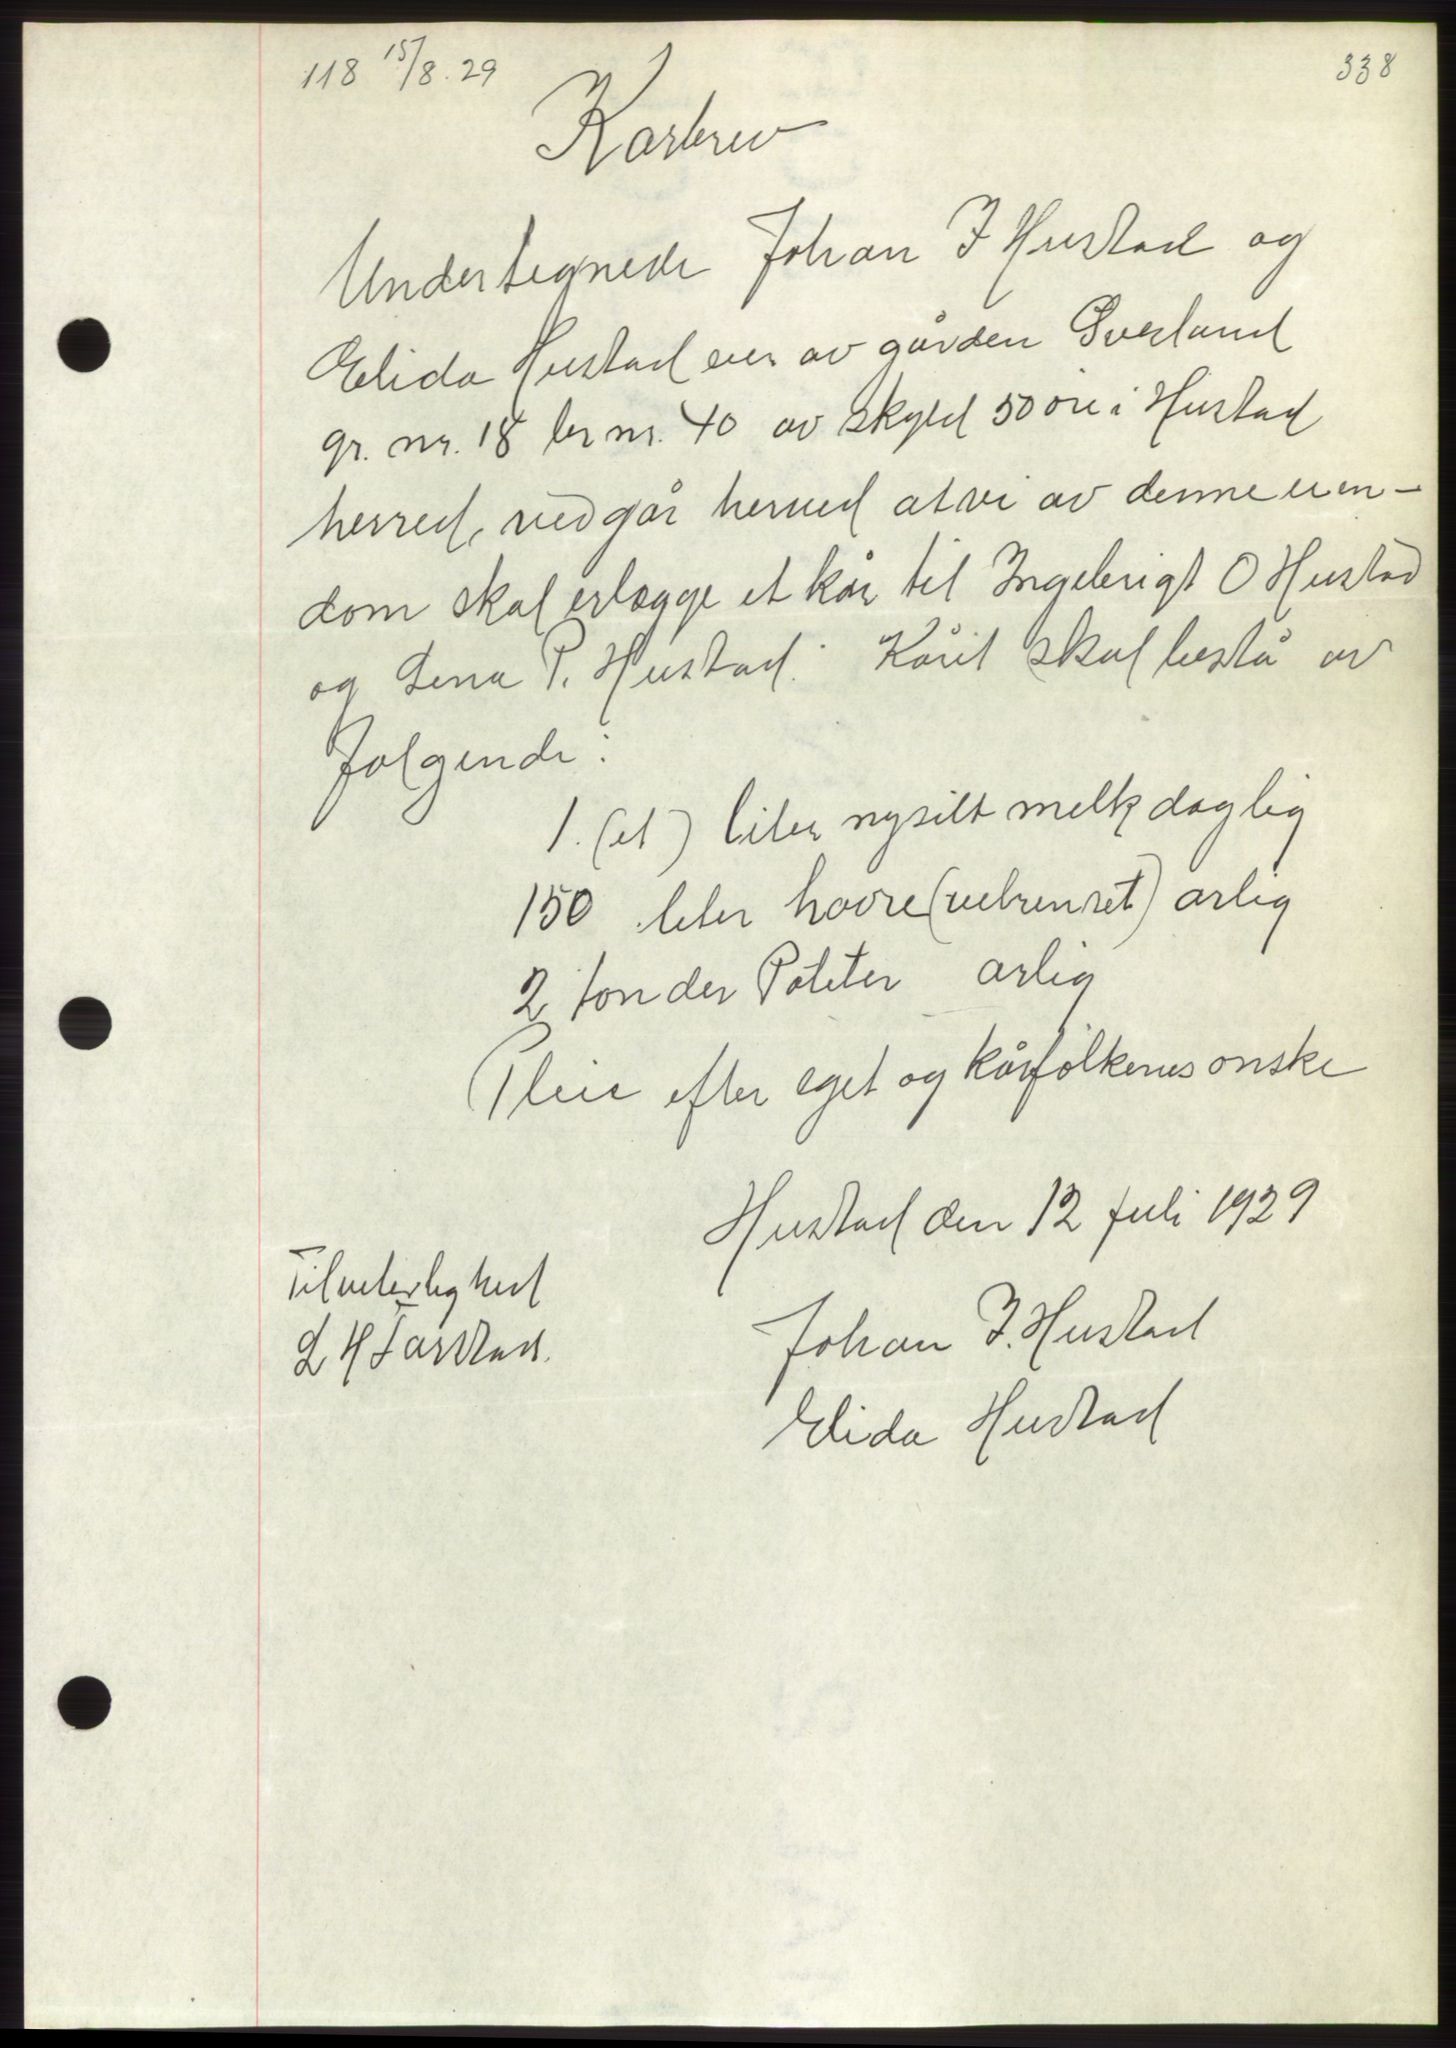 118 15/8. 29
338
Kårbrev
Undertegnede Johan I Hustad og
Elida Hustad eier av gården Sverland
gr. nr. 18 br nr. 40 av skyld 50 øre i Hustad
herred, vedgår herved at vi av denne eien-
dom skal erlægge et kår til Ingebrigt O Hustad
og Lena P. Hustad. Kåret skal bestå av
følgende:
1. (et) liter nysilt melk daglig
150 liter havre (velrenset) årlig
2 tønder Poteter årlig
Pleie efter eget og kårfolkenes ønske
Hustad den 12 juli 1929
Til vitterlighed
L H Tarstad.
Johan I. Hustad
Elida Hustad